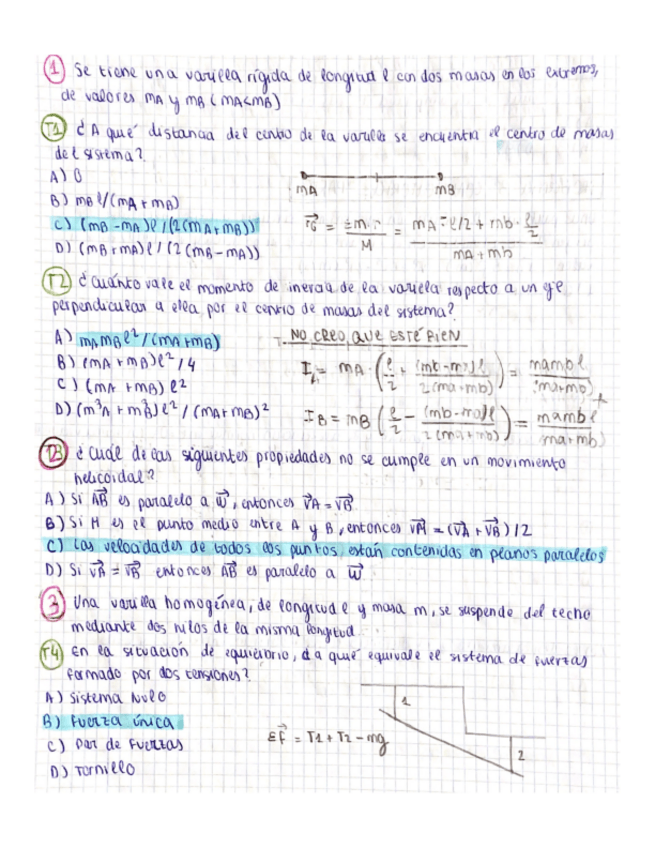 1 Se tiene una varilla rígida de longitud l con dos masas en los extremos,
de valores mA y mB (mA<mB)
T1 ¿A qué distancia del centro de la varilla se encuentra el centro de masas
del sistema?
A) 0
B) mB l/(mA + mB)
C) (mB - mA) l / (2(mA + mB))
D) (mB + mA) l / (2 (mB - mA))
mA mB
M = mA · l/2 + mb · l/2
mA + mb
T2 ¿Cuánto vale el momento de inercia de la varilla respecto a un eje
perpendicular a ella por el centro de masas del sistema?
A) mA mB l² / (mA + mB)
B) (mA + mB) l² / 4
C) (mA + mB) l²
D) (m³A + m³B) l² / (mA + mB)²
NO CREO QUE ESTÉ BIEN
= mA · (l/2 + (mb - ma) l / 2(ma + mb)) = mambl / (ma + mb) +
IB = mB (l/2 - (mb - ma) l / 2(ma + mb)) = mambl / (ma + mb)
¿Cuál de las siguientes propiedades no se cumple en un movimiento
helicoidal?
A) Si AB es paralelo a w, entonces vA = vB
B) Si M es el punto medio entre A y B, entonces vM = (vA + vB) / 2
C) Las velocidades de todos los puntos están contenidas en planos paralelos
D) Si vA = vB entonces AB es paralelo a w
3 Una varilla homogénea, de longitud l y masa m, se suspende del techo
mediante dos hilos de la misma longitud
T4 En la situación de equilibrio, ¿a qué equivale el sistema de fuerzas
formado por dos tensiones?
A) Sistema Nulo
B) Fuerza única
C) Par de Fuerzas
D) Tornillo
ΣF = T1 + T2 - mg
1
2